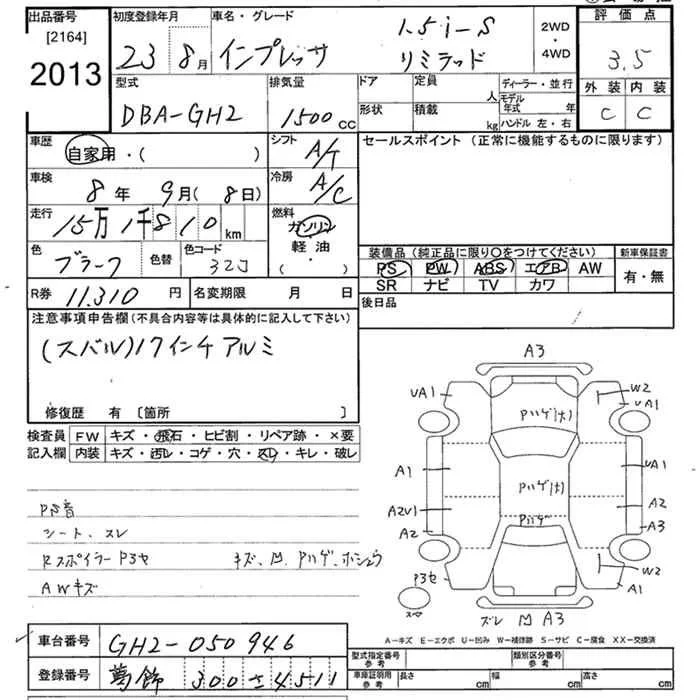 出品番号
[2164]
2013
初度登録年月
23 8月
車名・グレード
インプレッサ
1.5i-S
リミテッド
2WD
・
4WD
評価点
3.5
外装 内装
C C
型式
DBA-GH2
排気量
1500 CC
ドア
形状
定員
人
積載
kg
ディーラー・並行
モデル年式 年
ハンドル 左・右
車歴
自家用・( )
シフト
A/T
セールスポイント (正常に機能するものに限ります)
車検
8年 9月(8日)
冷房
A/C
走行
15万1千810 km
燃料
ガソリン
軽油・
( ・ )
色
ブラーク
色替
色コード
32J
装備品(純正品に限り〇をつけてください)
PS PW ABS エアB AW
SR ナビ TV カワ
新車保証書
有・無
R券 11.310 円
名変期限 月 日
後日品
注意事項申告欄(不具合内容等は具体的に記入して下さい)
(スバル)17インチアルミ
修復歴 有 [箇所 ]
検査員
記入欄
FW キズ・飛石・ヒビ割・リペア跡・×要
内装 キズ・汚レ・コゲ・穴・スレ・キレ・破レ
PS音
シート、スレ
RスポイラーP3セ キズ、凹、Pハゲ、ホシュウ
AWキズ
A3
UA1
W2
UA1
Pハゲ(大)
A1
UA1
Pハゲ(大)
A2U1
A2
Pハゲ
A2
A3
P3セ
W2
A1
スマ
ズレ 凹 A3
A-キズ E-エクボ U-凹み W-補修跡 S-サビ C-腐食 XX-交換済
車台番号
GH2-050946
登録番号
葛飾 300 さ 4511
型式指定番号
参考
類別区分番号
参考
車庫証明用
参考
長さ cm
幅 cm
高さ cm